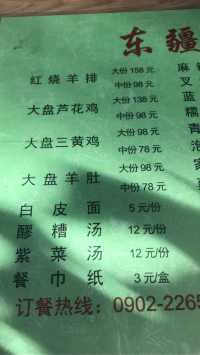 东疆
红烧羊排 大份158元 麻
中份98元 叉
大盘芦花鸡 大份138元 蓝
中份78元 糯
大盘三黄鸡 大份98元 青
中份78元 泡
大盘羊肚 大份98元 家
中份78元
白皮面 5元/份
醪糟汤 12元/份
紫菜汤 12元/份
餐巾纸 3元/盒
订餐热线：0902-2265